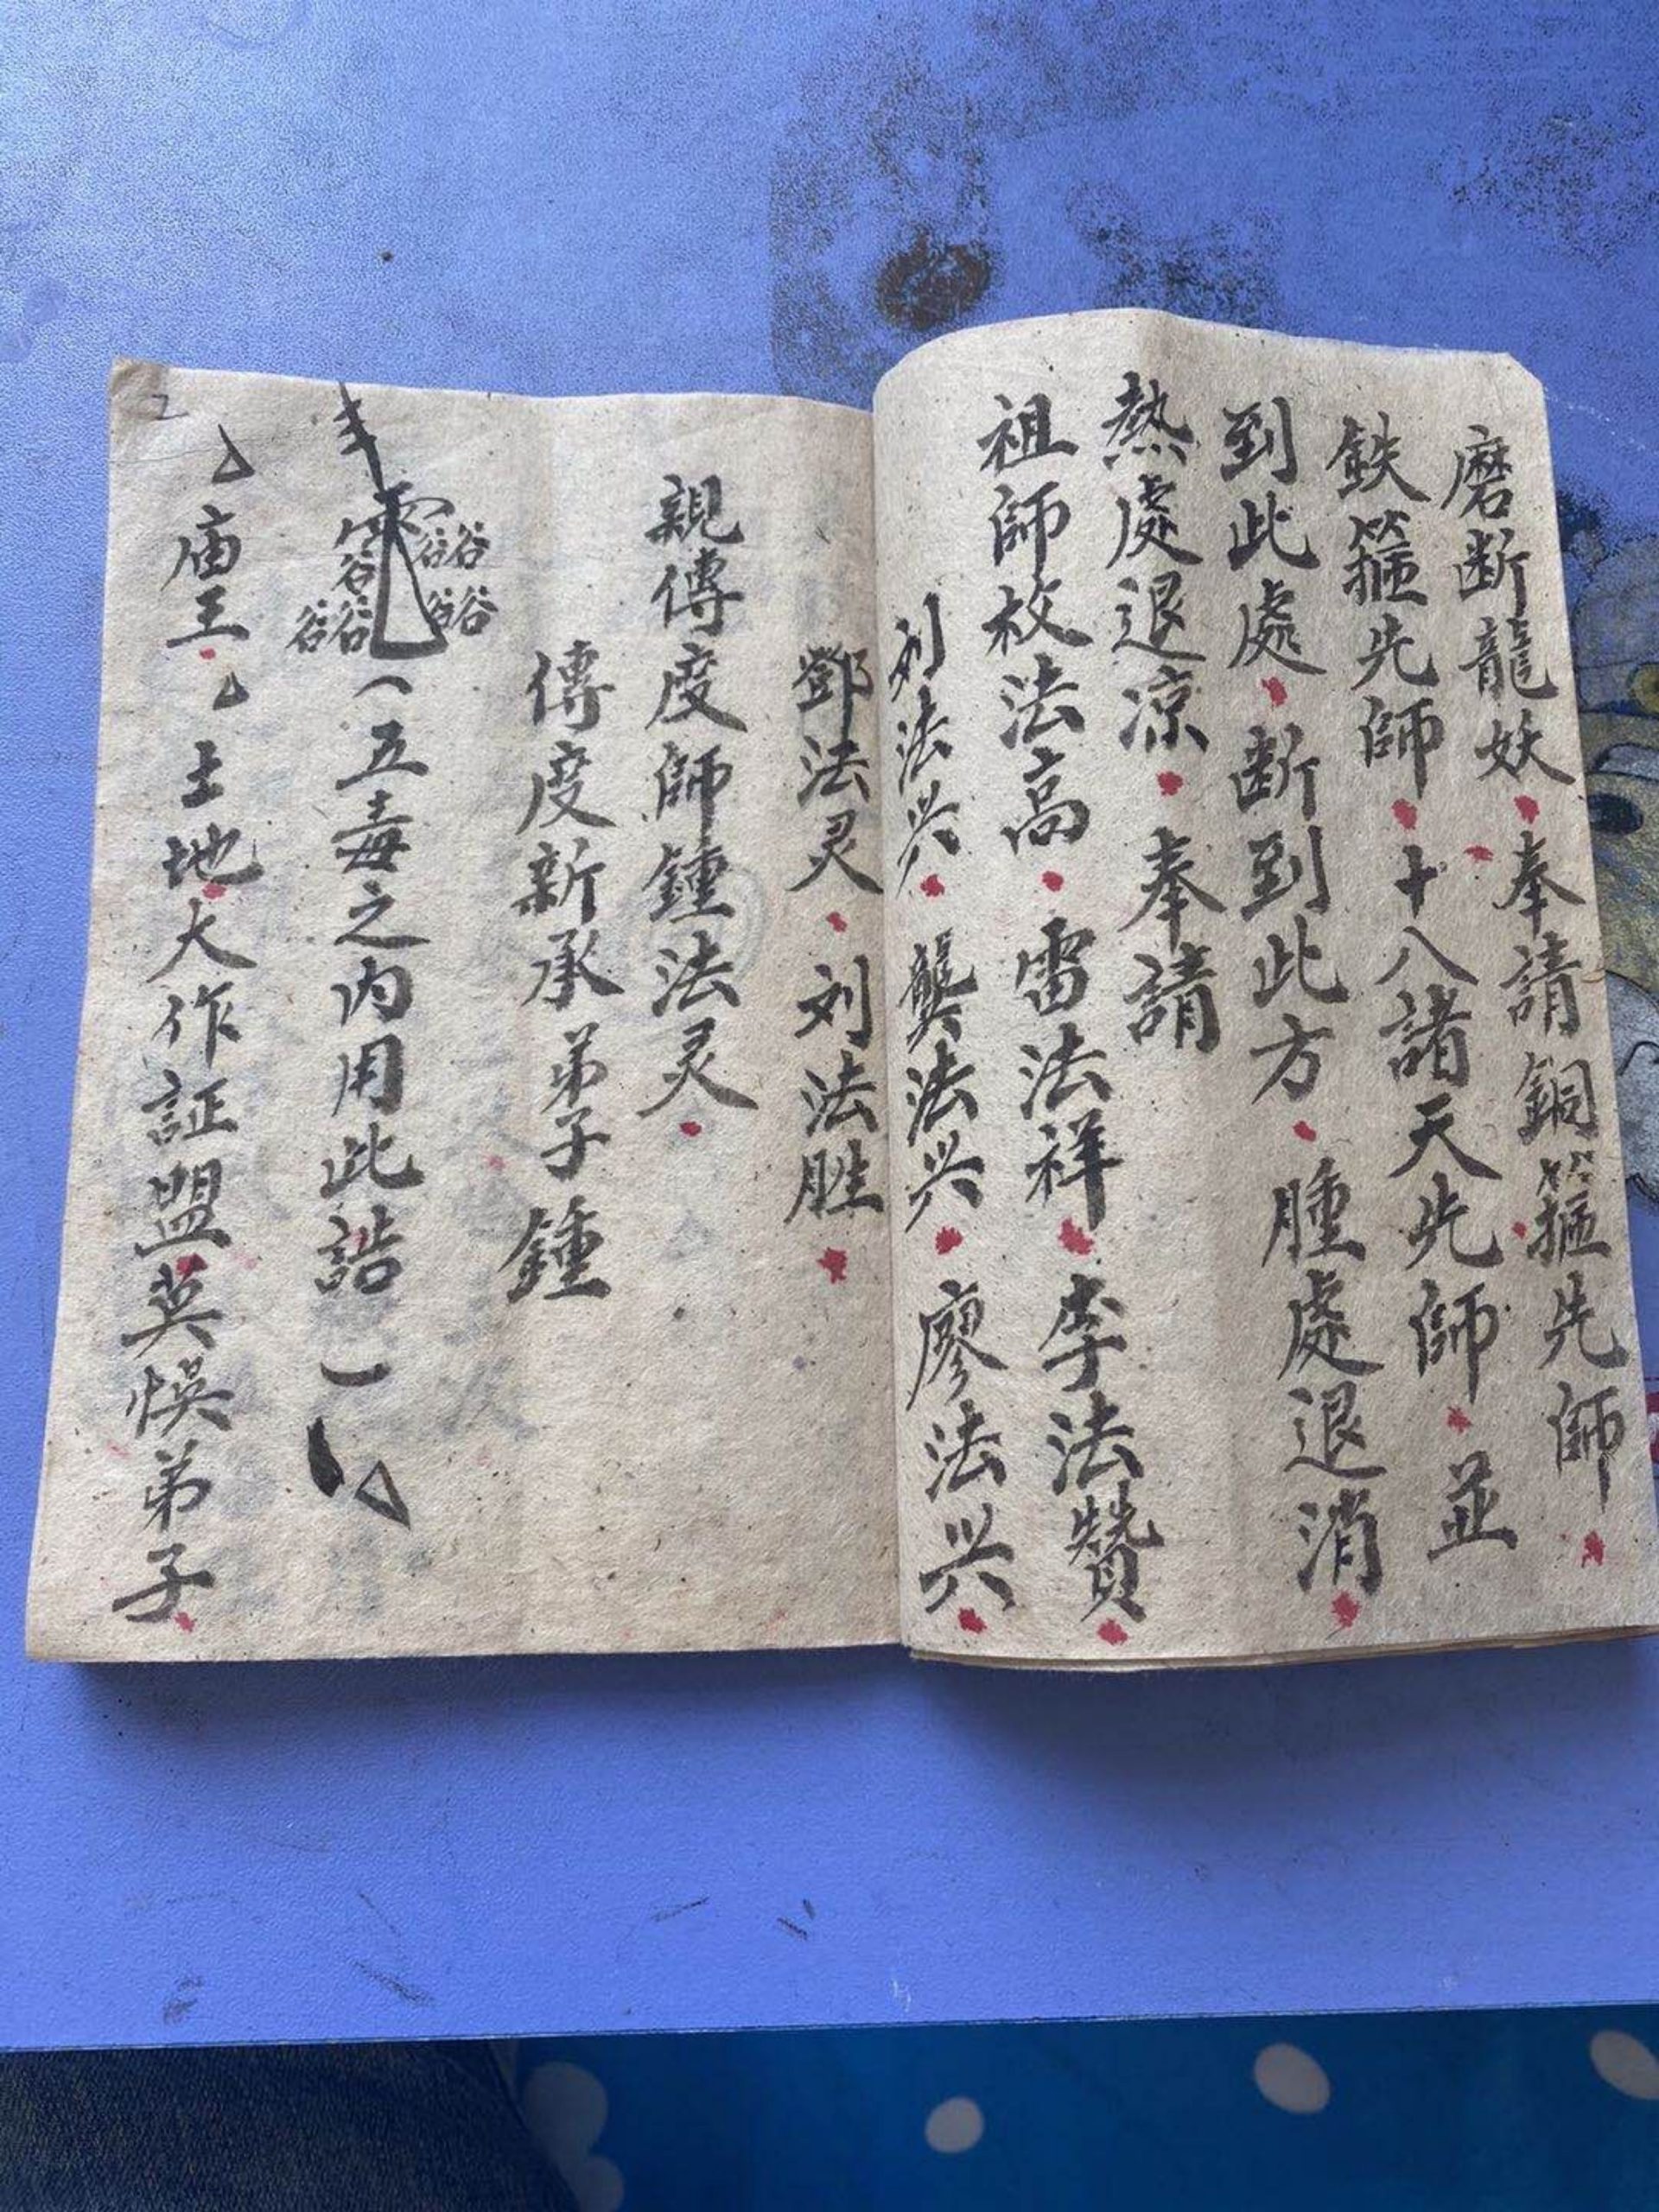 磨断龍妖奉請銅箍先師
鉄箍先師十八諸天先師並
到此處断到此方腫處退消
熱處退凉奉請
祖師枚法高雷法祥李法贊
刘法兴龔法兴廖法兴
鄧法灵刘法胜
親傳度師鍾法灵
傳度新承弟子鍾
(五毒之内用此誥)
庙王土地大作証盟莫悮弟子